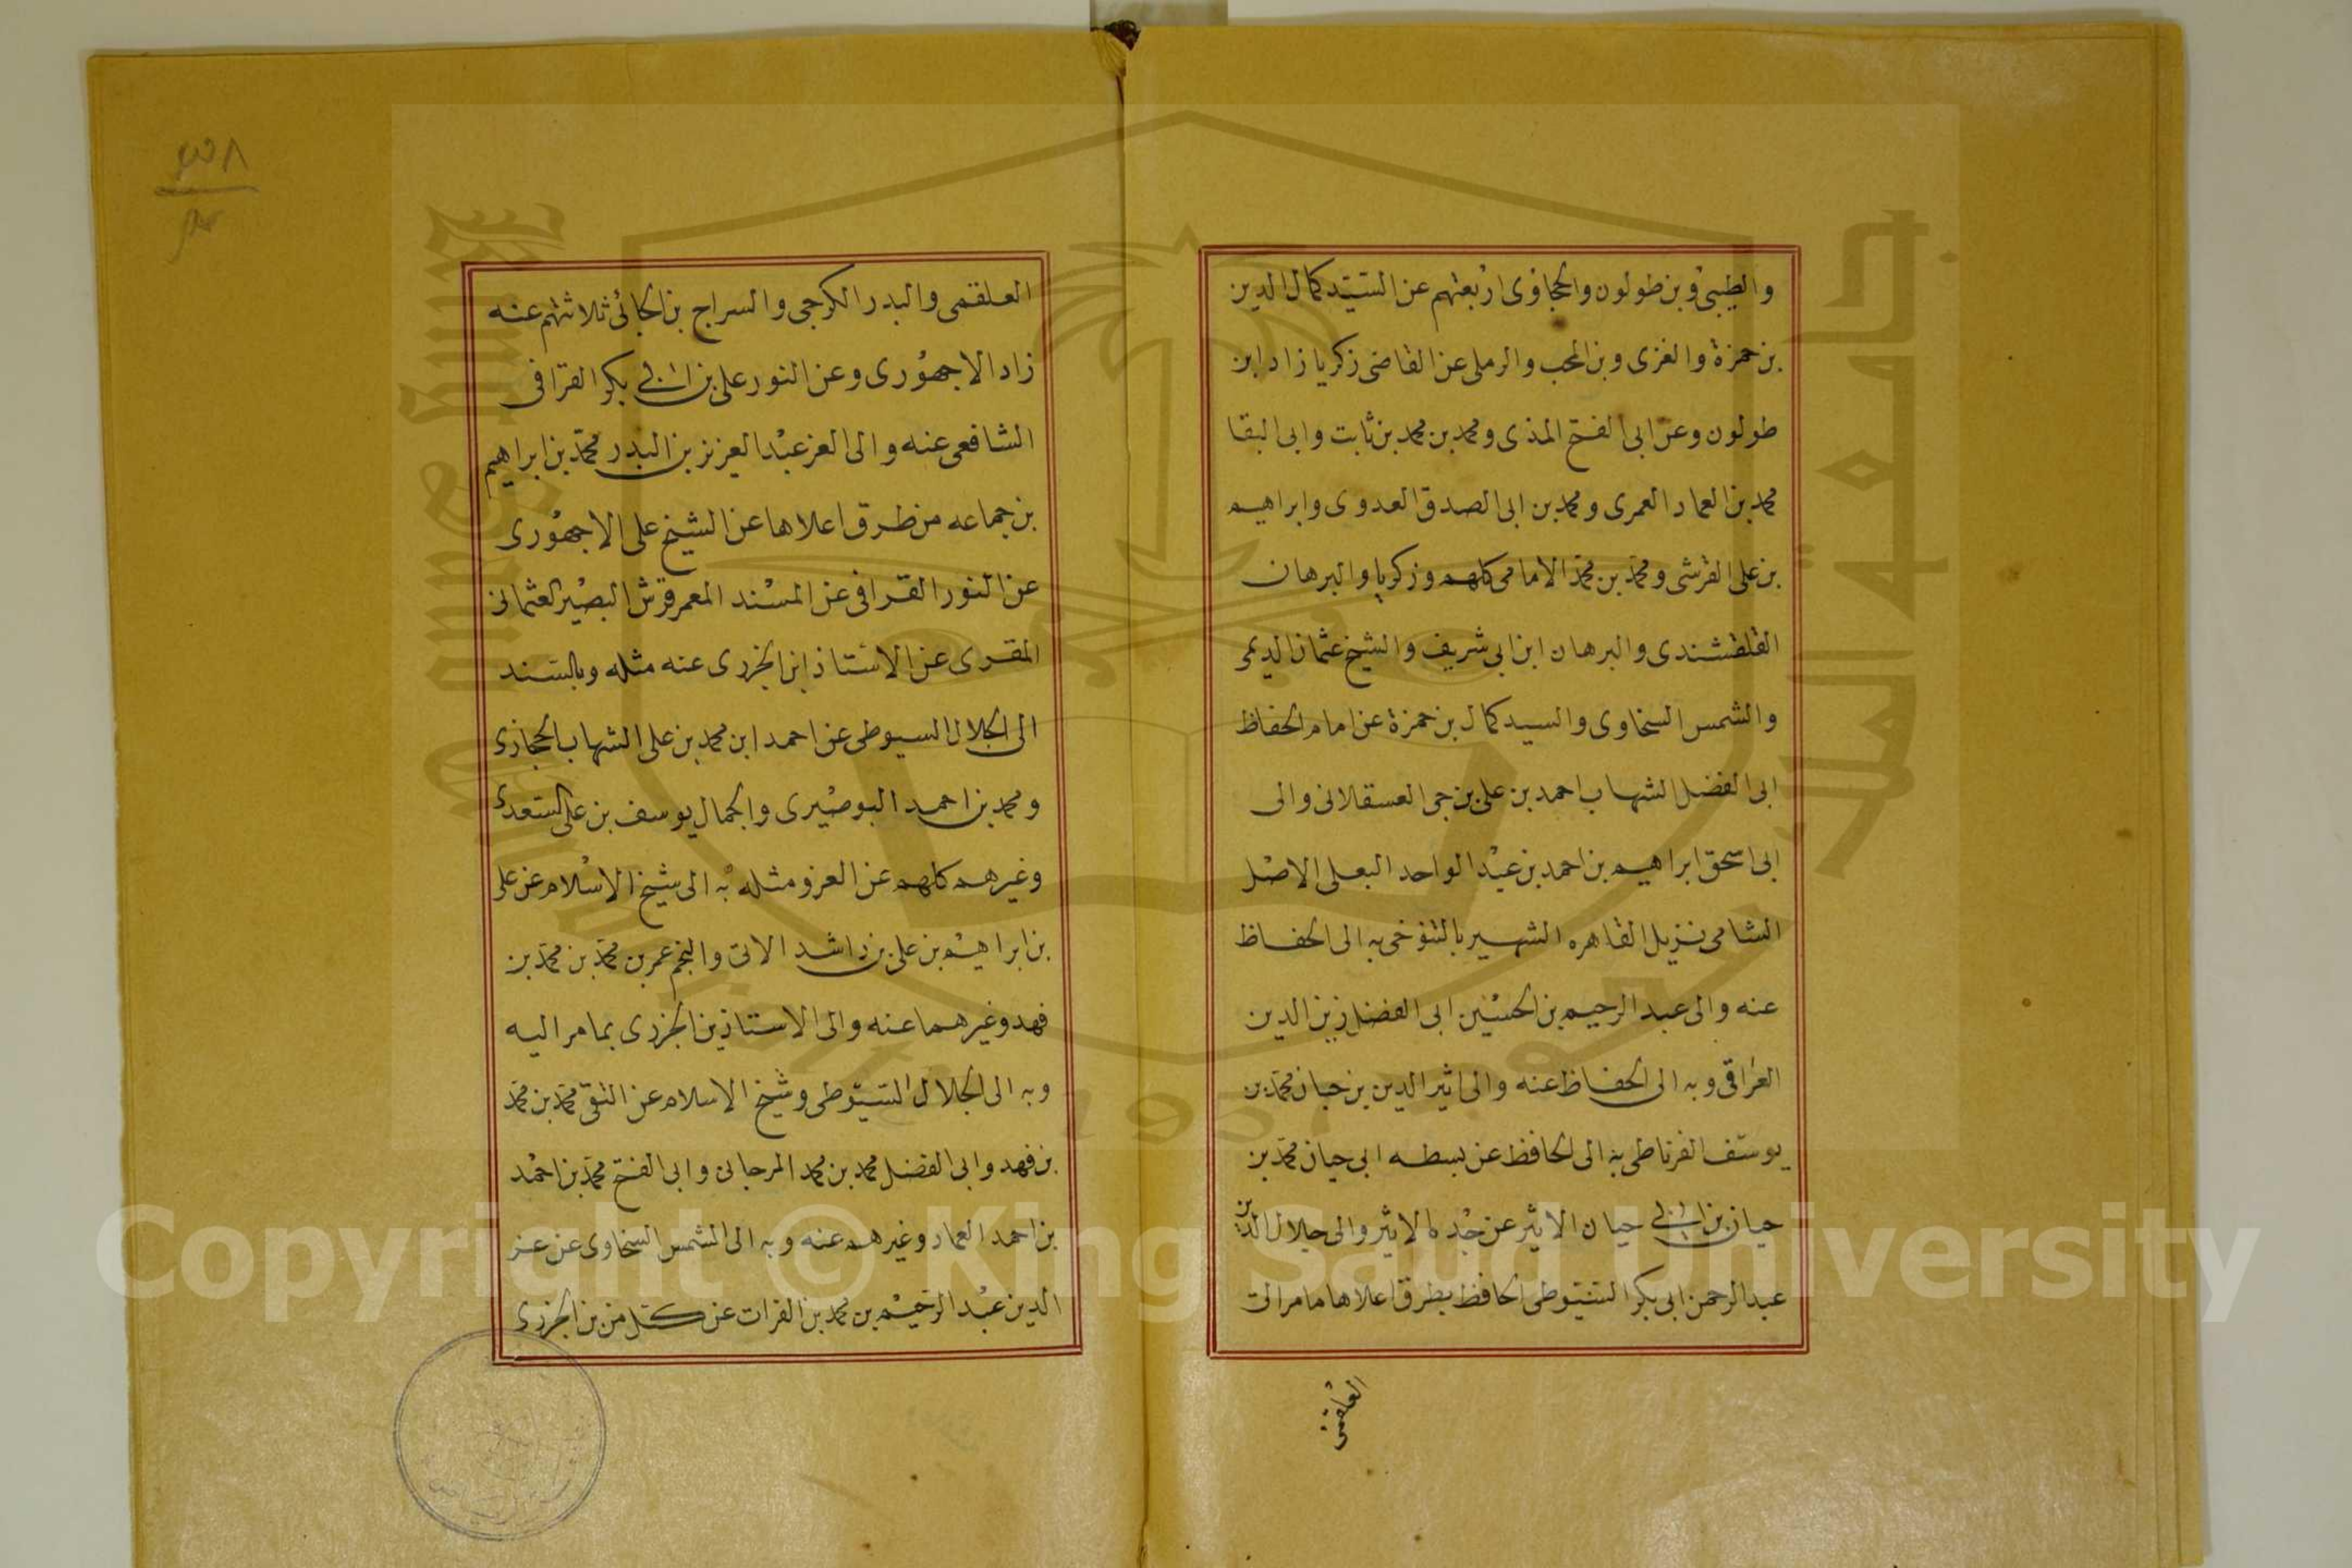 والطيبي وبن طولون والحجاوى اربعتهم عن السيد كمال الدين
بن حمزة والغزى وبن المحب والرملى عن القاضى زكريا زاد ابن
طولون وعن ابى الفتح المذى ومحمد بن محمد بن ثابت وابى البقا
محمد بن العماد العمرى ومحمد بن ابى الصدق العدوى وابراهيم
بن على القرشى ومحمد بن محمد الامامى كلهم وزكريا والبرهان
القلقشندى والبرهان ابن ابى شريف والشيخ عثمان الديمى
والشمس السخاوى والسيد كمال بن حمزة عن امام الحفاظ
ابى الفضل الشهاب احمد بن على بن حجى العسقلانى والى
ابى اسحق ابراهيم بن احمد بن عبد الواحد البعلى الاصل
الشامى نزيل القاهره الشهير بالتنوخى به الى الحفاظ
عنه والى عبد الرحيم بن الحسين ابى الفضل زين الدين
العراقى وبه الى الحفاظ عنه والى اثير الدين بن حبان محمد بن
يوسف الغرناطى به الى الحافظ عن بسطه ابى حيان محمد بن
حيان بن ابى حيان الاثير عن جده الاثير والى جلال الدين
عبد الرحمن ابى بكر السيوطى الحافظ بطرق اعلاها ما مر الى
العلقمى
العلقمى والبدر الكرجى والسراج بن الجائى ثلاثتهم عنه
زاد الاجهورى وعن النور على بن ابى بكر القرافى
الشافعى عنه والى العز عبد العزيز بن البدر محمد بن ابراهيم
بن جماعه من طرق اعلاها عن الشيخ على الاجهورى
عن النور القرافى عن المسند المعمر قرش البصير العثمانى
المقرى عن الاستاذ ابن الجزرى عنه مثله وبالسند
الى الجلال السيوطى عن احمد ابن محمد بن على الشهاب الحجازى
ومحمد بن احمد البوصيرى والجمال يوسف بن على السعدى
وغيرهم كلهم عن العز ومثله به الى شيخ الاسلام عن على
بن ابراهيم بن على بن راشد الاتى والنجم عمر بن محمد بن محمد بن
فهد وغيرهما عنه والى الاستاذ بن الجزرى بما مر اليه
وبه الى الجلال السيوطى وشيخ الاسلام عن التقى محمد بن محمد
بن فهد وابى الفضل محمد بن محمد المرجانى وابى الفتح محمد بن احمد
بن احمد العماد وغيرهم عنه وبه الى الشمس السخاوى عن عز
الدين عبد الرحيم بن محمد بن الفرات عن كل من بن الجزرى
Copyright © King Saud University